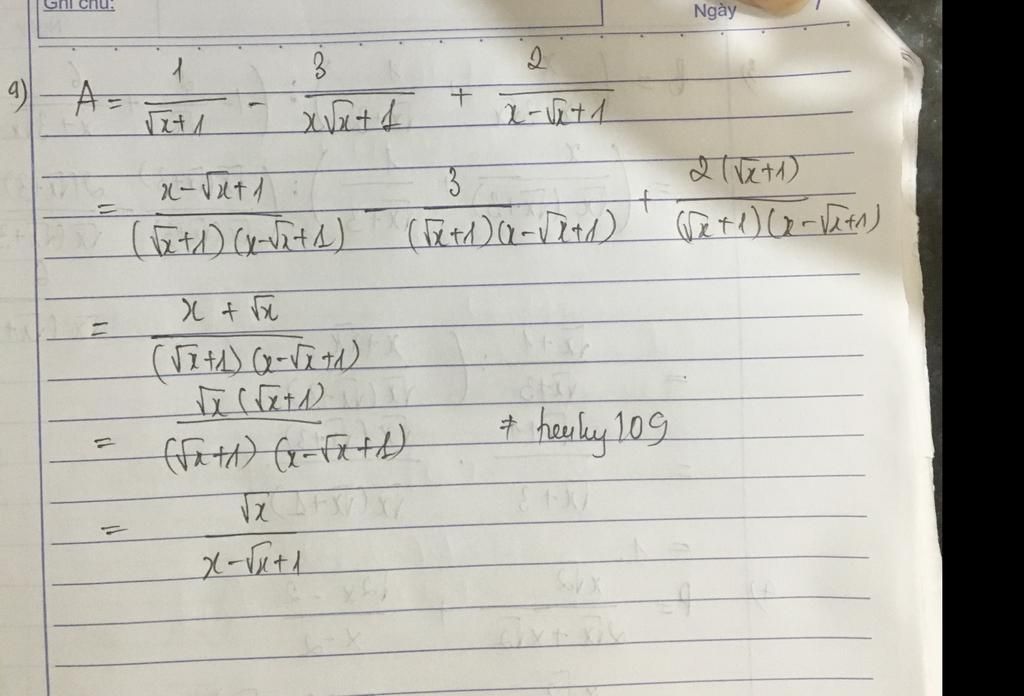 Ghi chú:
Ngày
9) A = 1/(√x+1) - 3/(x√x+1) + 2/(x-√x+1)
= (x-√x+1)/((√x+1)(x-√x+1)) - 3/((√x+1)(x-√x+1)) + 2(√x+1)/((√x+1)(x-√x+1))
= (x+√x)/((√x+1)(x-√x+1))
= √x(√x+1)/((√x+1)(x-√x+1))
= √x/(x-√x+1)